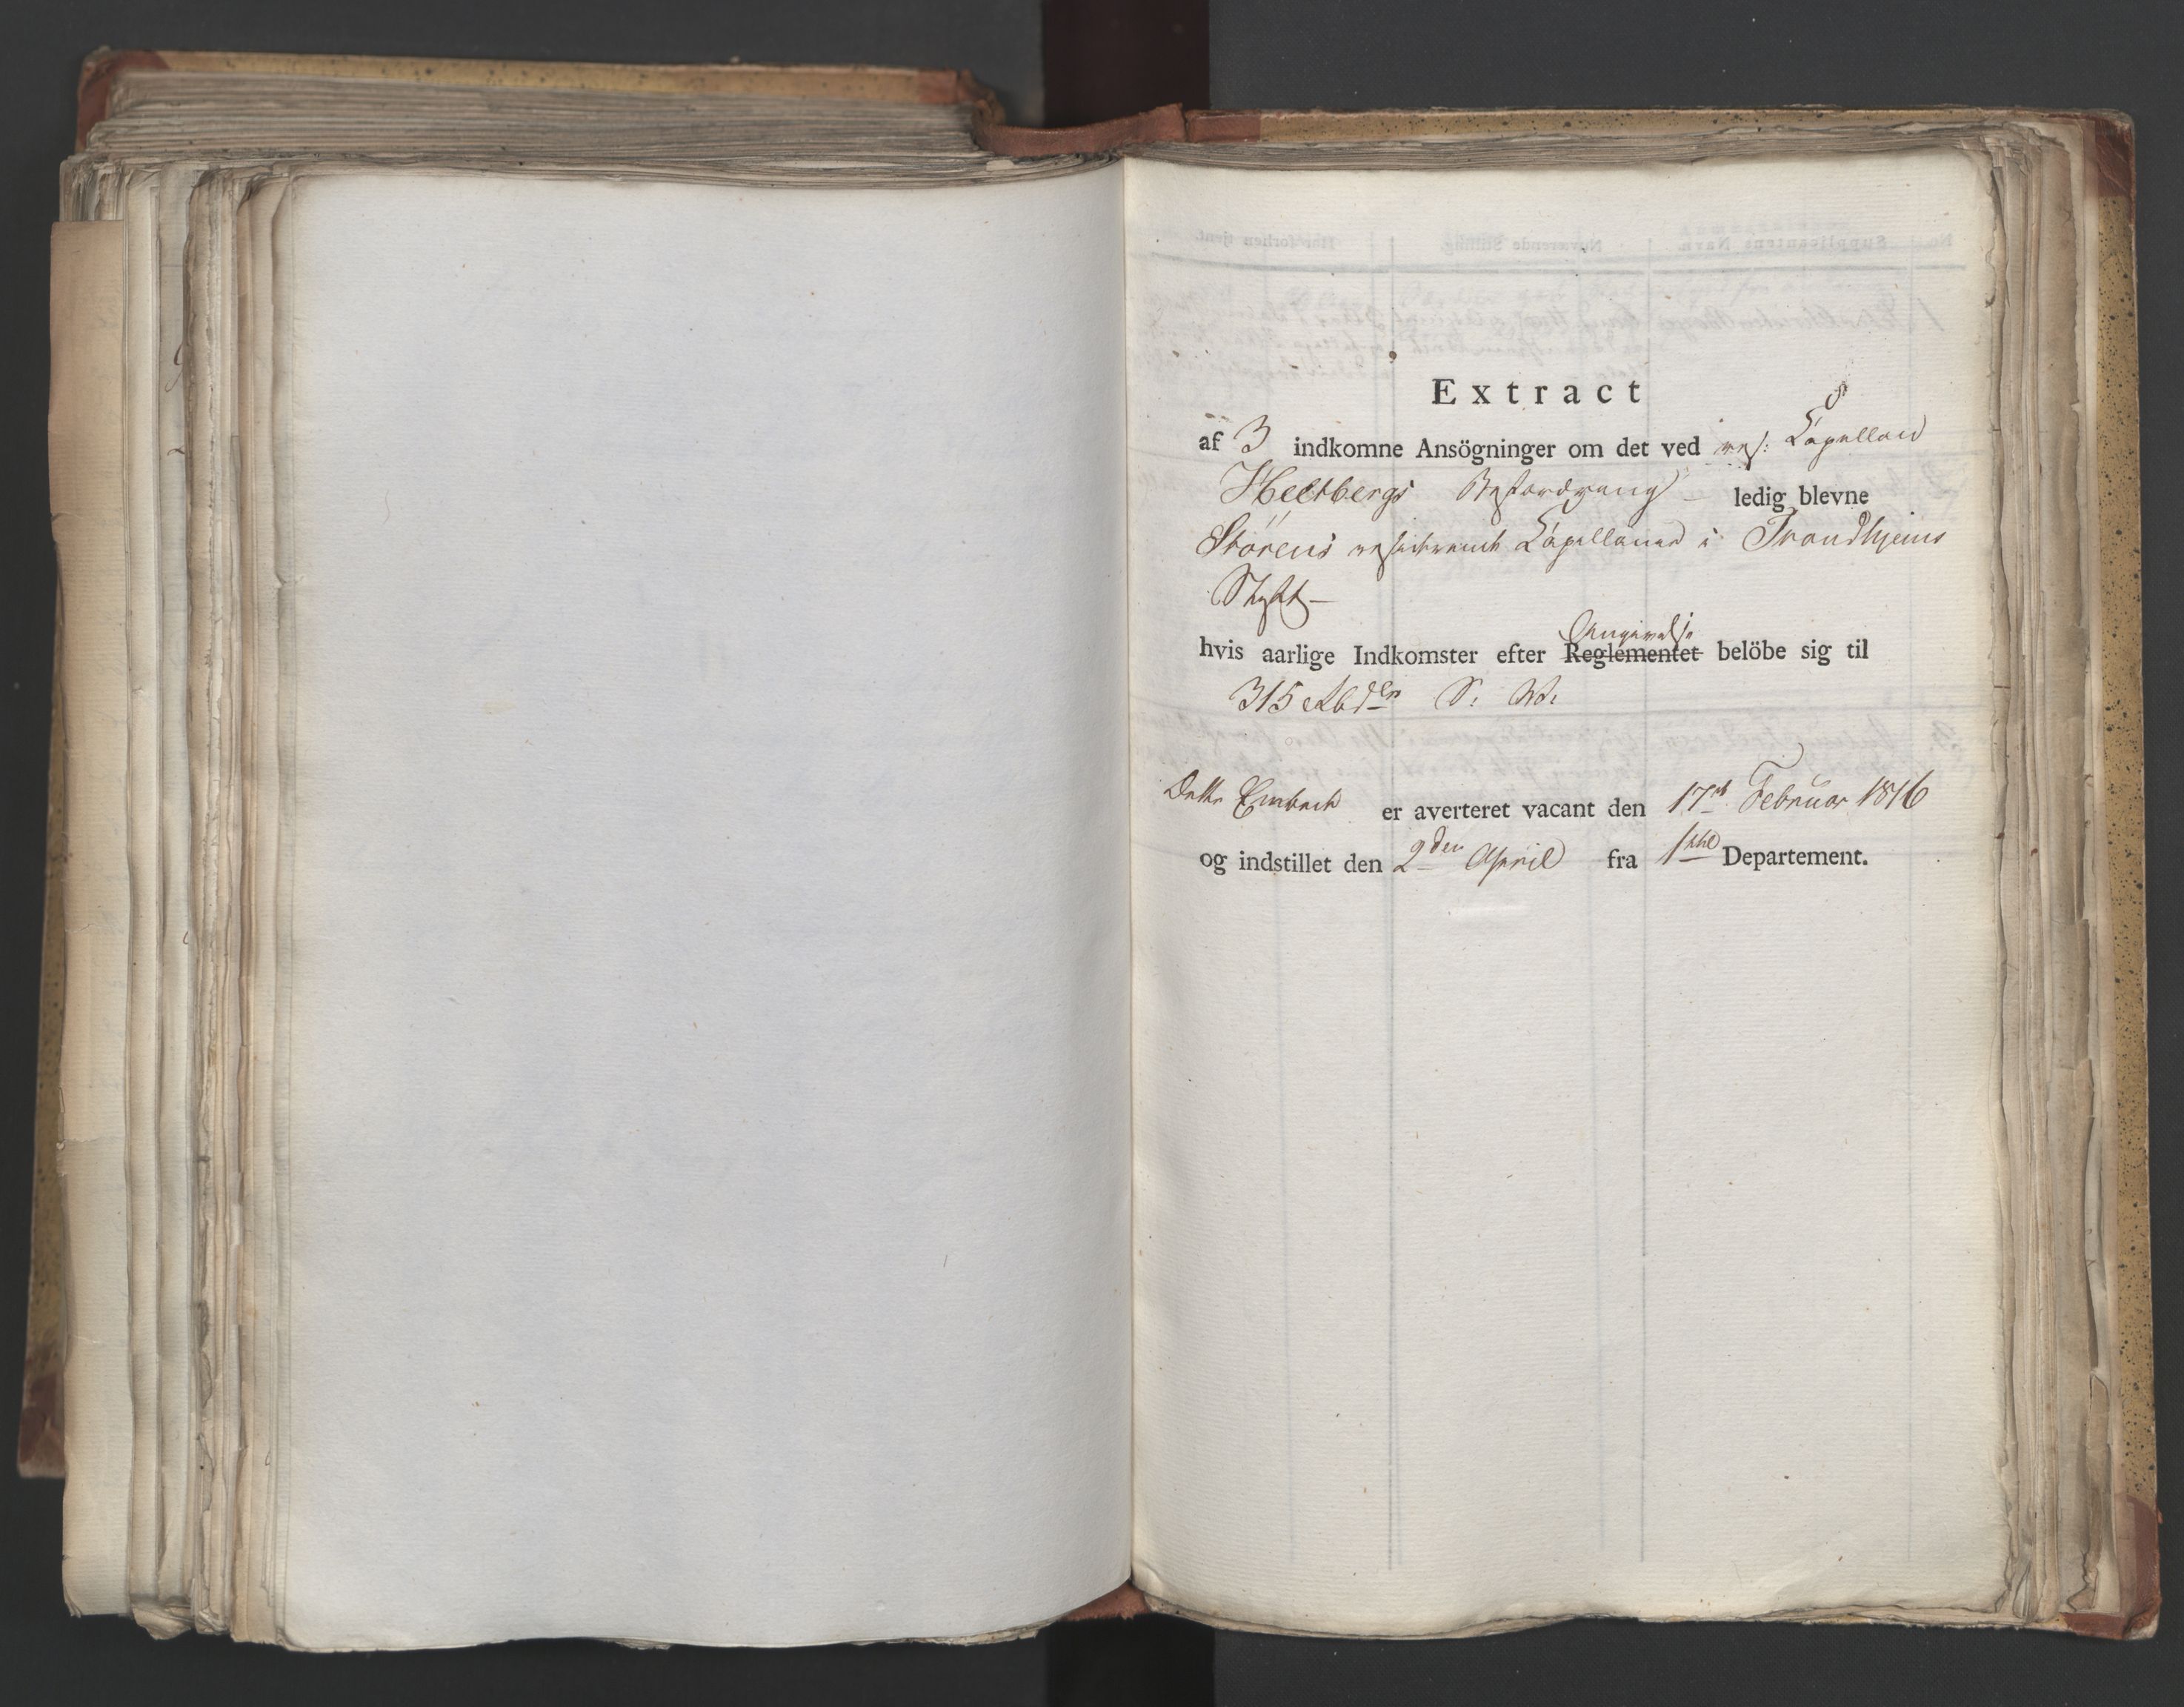 Extract
af 3 indkomne Ansögninger om det ved res: Capellan
Heltbergs Befordring – ledig blevne
Störens residerende Capellanie i Trondhjems
Stift –
Angivelse
hvis aarlige Indkomster efter Reglementet belöbe sig til
315 Rbdlr S. V.
Dette Embede er averteret vacant den 17de Februar 1816
og indstillet den 2den April fra 1ste Departement.